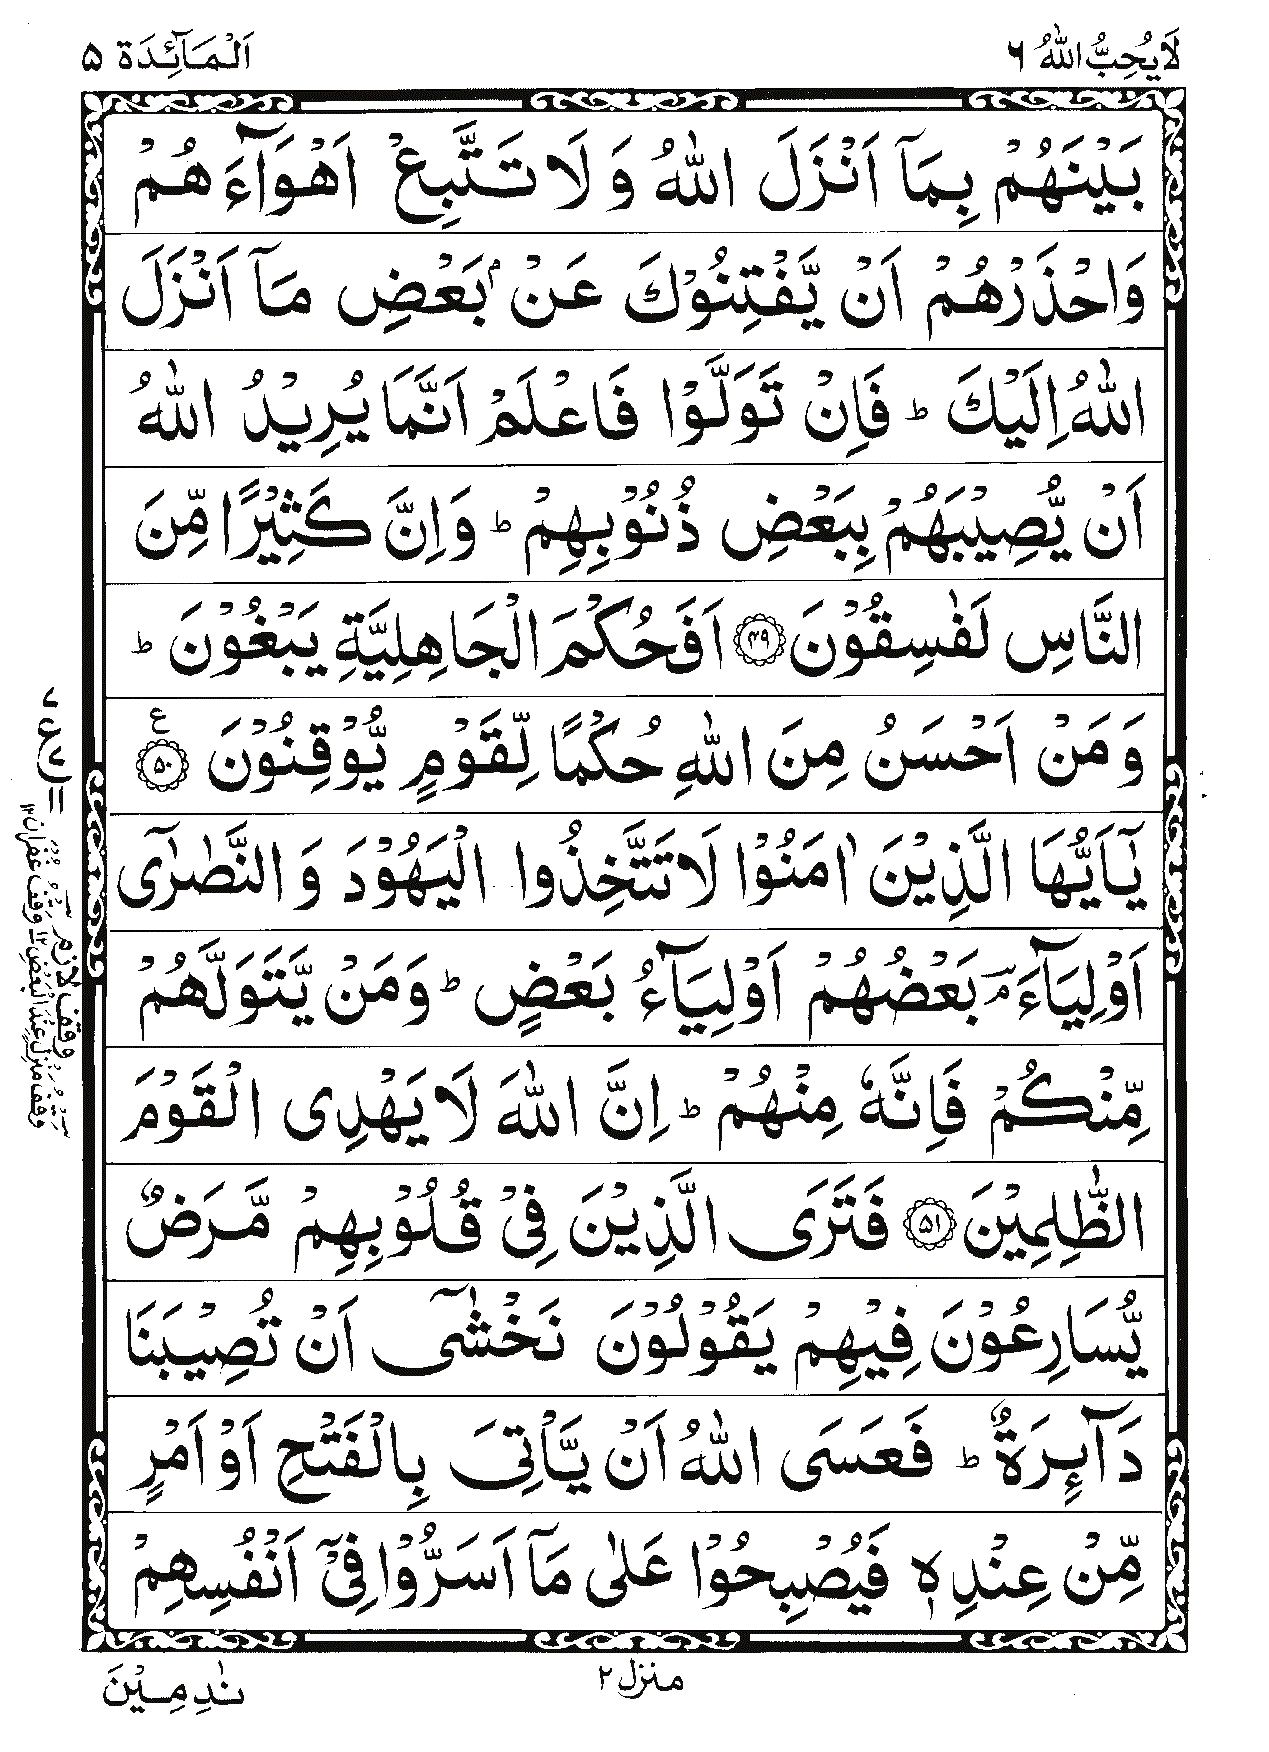 لَا يُحِبُّ اللّٰهُ ٦
اَلْمَآئِدَة ٥
بَيْنَهُمْ بِمَاۤ اَنْزَلَ اللّٰهُ وَ لَا تَتَّبِعْ اَهْوَآءَهُمْ
وَاحْذَرْهُمْ اَنْ يَّفْتِنُوْكَ عَنْۢ بَعْضِ مَاۤ اَنْزَلَ
اللّٰهُ اِلَيْكَ ؕ فَاِنْ تَوَلَّوْا فَاعْلَمْ اَنَّمَا يُرِيْدُ اللّٰهُ
اَنْ يُّصِيْبَهُمْ بِبَعْضِ ذُنُوْبِهِمْ ؕ وَاِنَّ كَثِيْرًا مِّنَ
النَّاسِ لَفٰسِقُوْنَ ﴿۴۹﴾ اَفَحُكْمَ الْجَاهِلِيَّةِ يَبْغُوْنَ ؕ
وَمَنْ اَحْسَنُ مِنَ اللّٰهِ حُكْمًا لِّقَوْمٍ يُّوْقِنُوْنَ ﴿۵۰﴾ ع
يٰۤاَيُّهَا الَّذِيْنَ اٰمَنُوْا لَا تَتَّخِذُوا الْيَهُوْدَ وَالنَّصٰرٰۤى
اَوْلِيَآءَ ۘ بَعْضُهُمْ اَوْلِيَآءُ بَعْضٍ ؕ وَمَنْ يَّتَوَلَّهُمْ
مِّنْكُمْ فَاِنَّهٗ مِنْهُمْ ؕ اِنَّ اللّٰهَ لَا يَهْدِى الْقَوْمَ
الظّٰلِمِيْنَ ﴿۵۱﴾ فَتَرَى الَّذِيْنَ فِىْ قُلُوْبِهِمْ مَّرَضٌ
يُّسَارِعُوْنَ فِيْهِمْ يَقُوْلُوْنَ نَخْشٰۤى اَنْ تُصِيْبَنَا
دَآئِرَةٌ ؕ فَعَسَى اللّٰهُ اَنْ يَّاْتِىَ بِالْفَتْحِ اَوْ اَمْرٍ
مِّنْ عِنْدِهٖ فَيُصْبِحُوْا عَلٰى مَاۤ اَسَرُّوْا فِىْۤ اَنْفُسِهِمْ
منزل ٢
نٰدِمِيْنَ
وقف لازم
وقف منزل عند البعض ١٢ وقف غفران ١٢